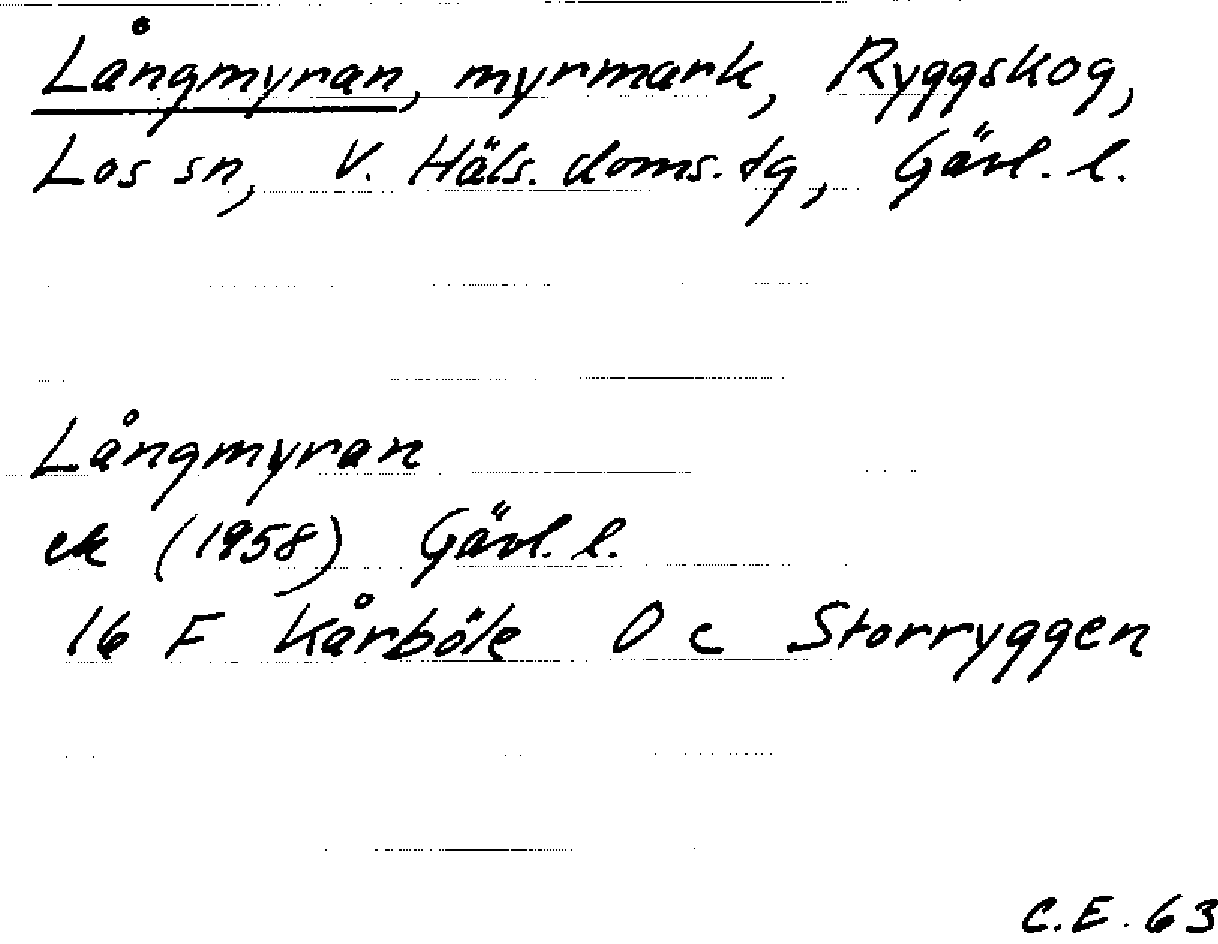 Långmyran, myrmark, Ryggskog,
Los sn, V. Häls. doms. tg, Gävl. l.
Långmyran
ek (1958) Gävl. l.
16 F Kårböle O c Storryggen
C.E. 63